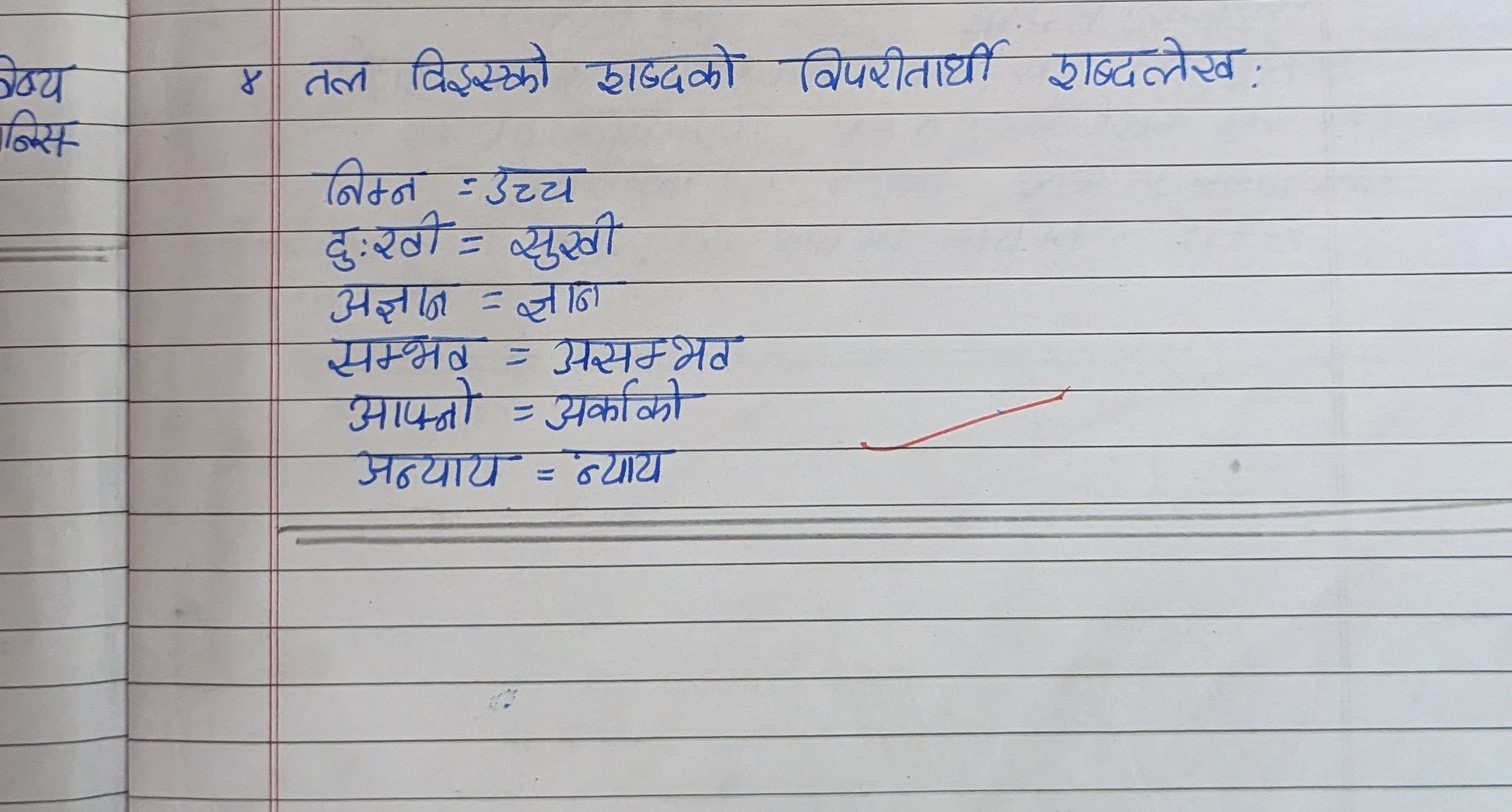 ४ तल दिइएको शब्दको विपरीतार्थी शब्दलेख:
निम्न = उच्च
दु:खी = सुखी
अज्ञान = ज्ञान
सम्भव = असम्भव
आफ्नो = अर्काको
अन्याय = न्याय